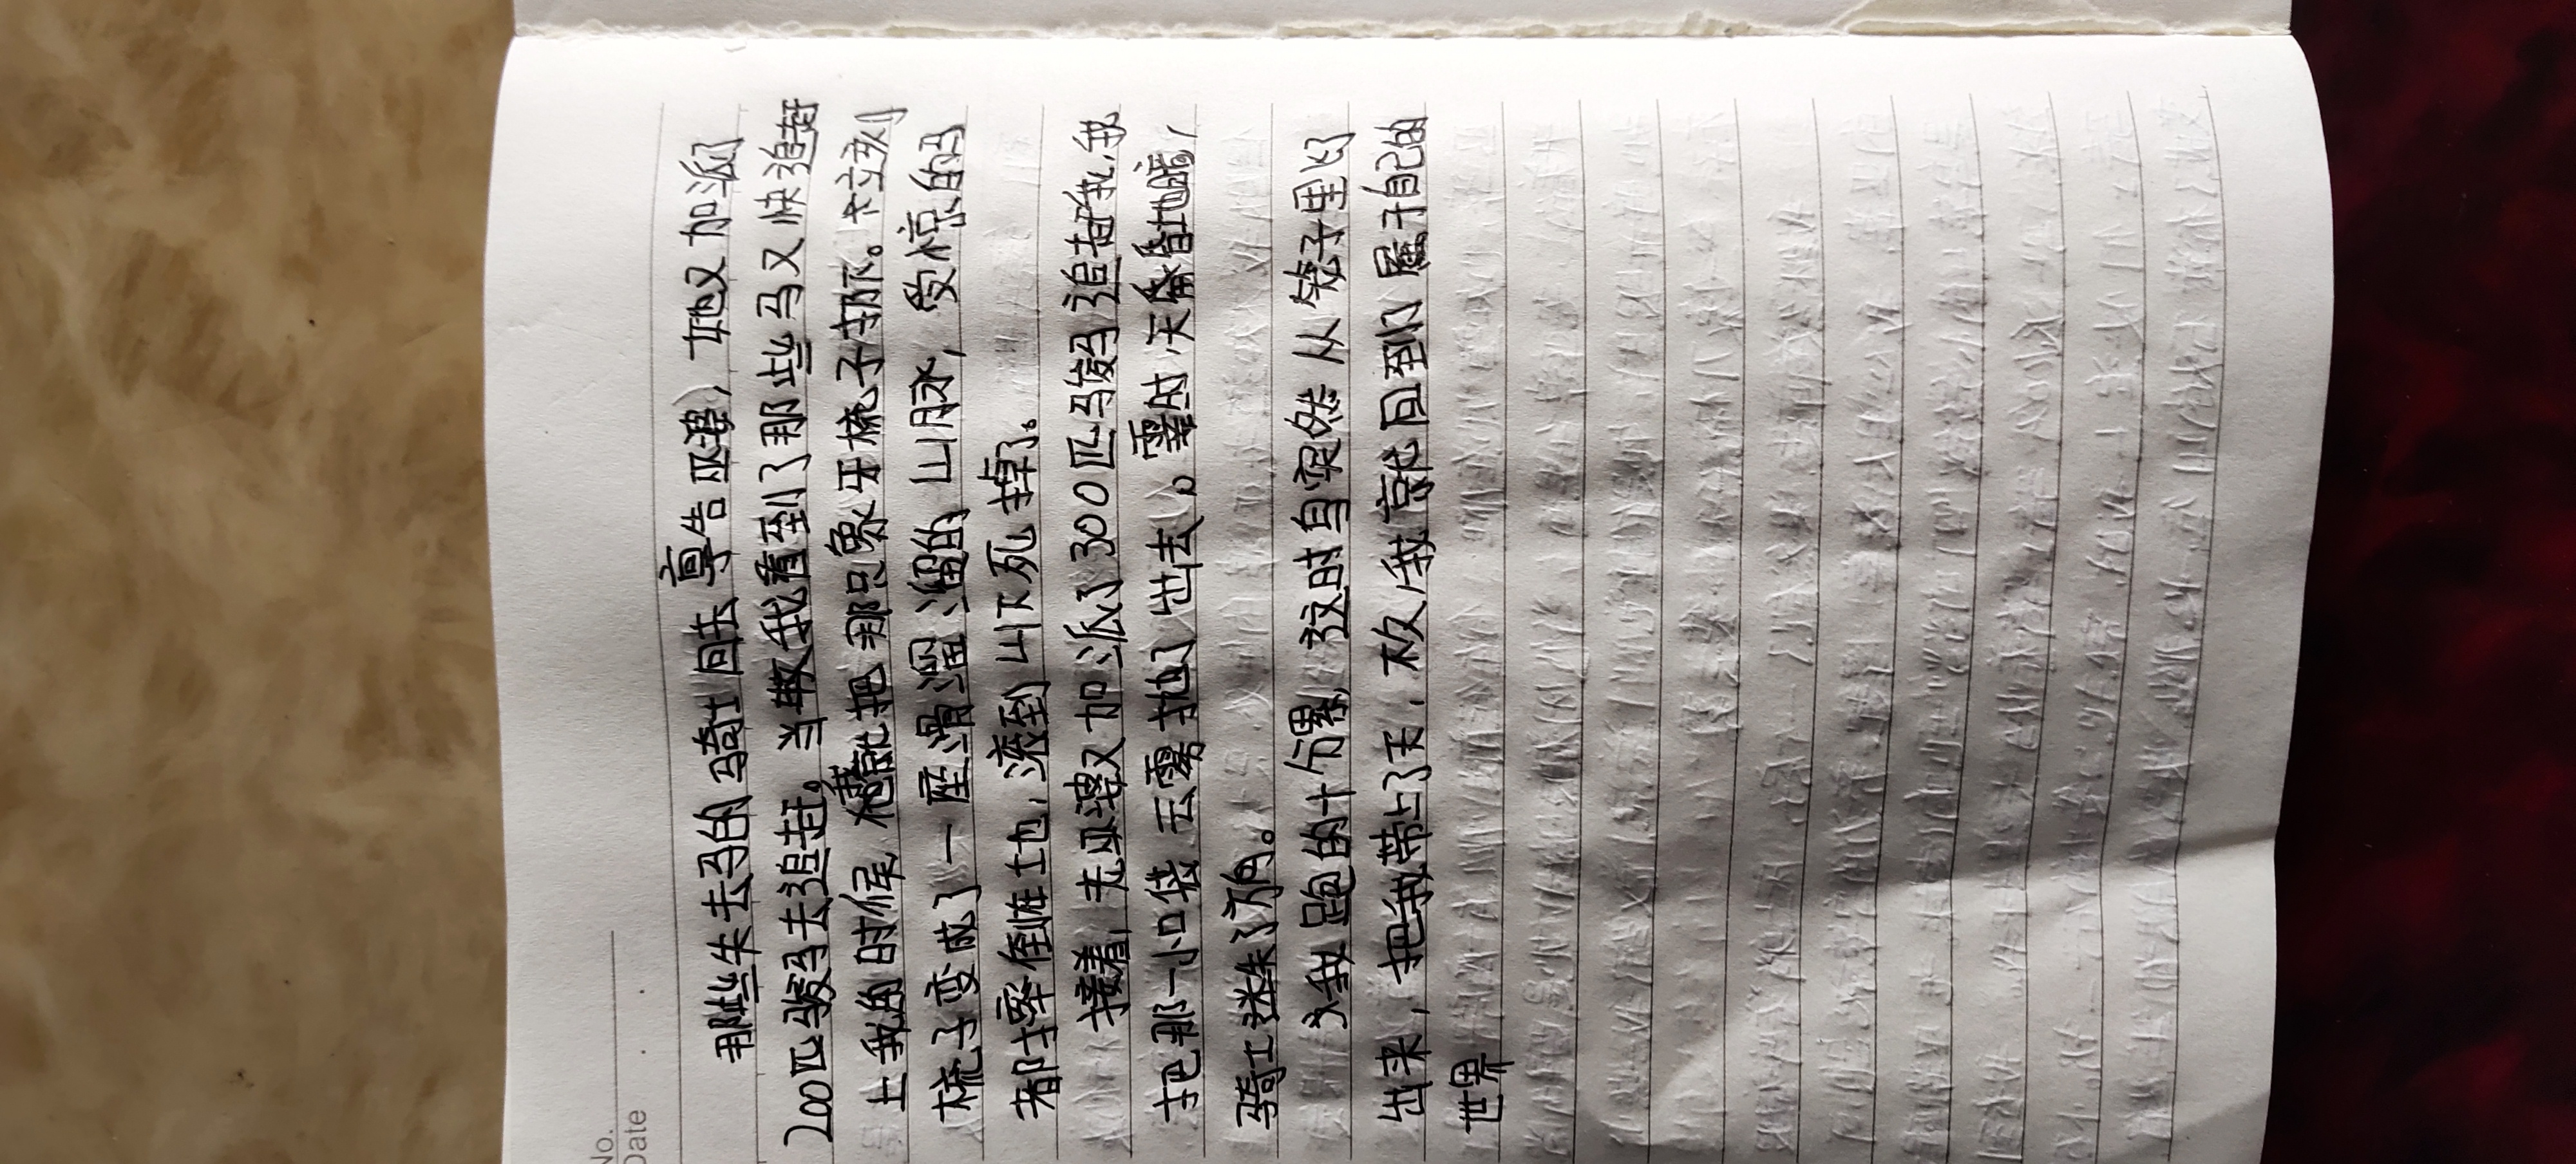 No.
Date
那些失去马的骑士回去禀告巫婆，她又加派了
200匹骏马去追赶。当我看到了那些马又快追赶
上我的时候 就把那只象牙梳子扔下。梳子立刻
梳子变成了一座滑溜溜的山脉，受惊的马
都摔倒在地，滚到山下死掉了。
接着，老巫婆又加派了300匹马骏马追赶我，我
把那一小口袋云雾抛了出去。霎时，天昏地暗，
骑士迷失了方向。
我跑的十分累，这时鸟突然从笼子里飞了
出来，把我带上了天，我就回到了属于自己的
世界